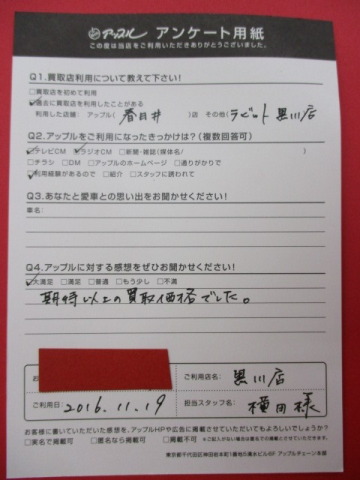 アップル アンケート用紙
この度は当店をご利用いただきありがとうございました。
Q1.買取店利用について教えて下さい!
□買取店を初めて利用
☑過去に買取店を利用したことがある
利用した店舗: アップル( 春日井 )店 その他(ラビット黒川店
Q2.アップルをご利用になったきっかけは?(複数回答可)
☑テレビCM ☑ラジオCM □新聞・雑誌(媒体名/ )
□チラシ □DM □アップルのホームページ □通りがかりで
☑利用経験があるので □紹介 □スタッフに誘われて
Q3.あなたと愛車との思い出をお聞かせください!
車名:
Q4.アップルに対する感想をぜひお聞かせください!
☑大満足 □満足 □普通 □もう少し □不満
期待以上の買取価格でした。
お
ご利用店名: 黒川店
ご利用日: 2016.11.19
担当スタッフ名: 横田様
お客様に書いていただいた感想を、アップルHPや広告に掲載させていただいてもよろしいでしょうか?
□実名で掲載可 □匿名なら掲載可 □掲載不可 ※ご記入がない場合は匿名での掲載とさせていただきます。
東京都千代田区神田岩本町1番地 アップルチェーン本部